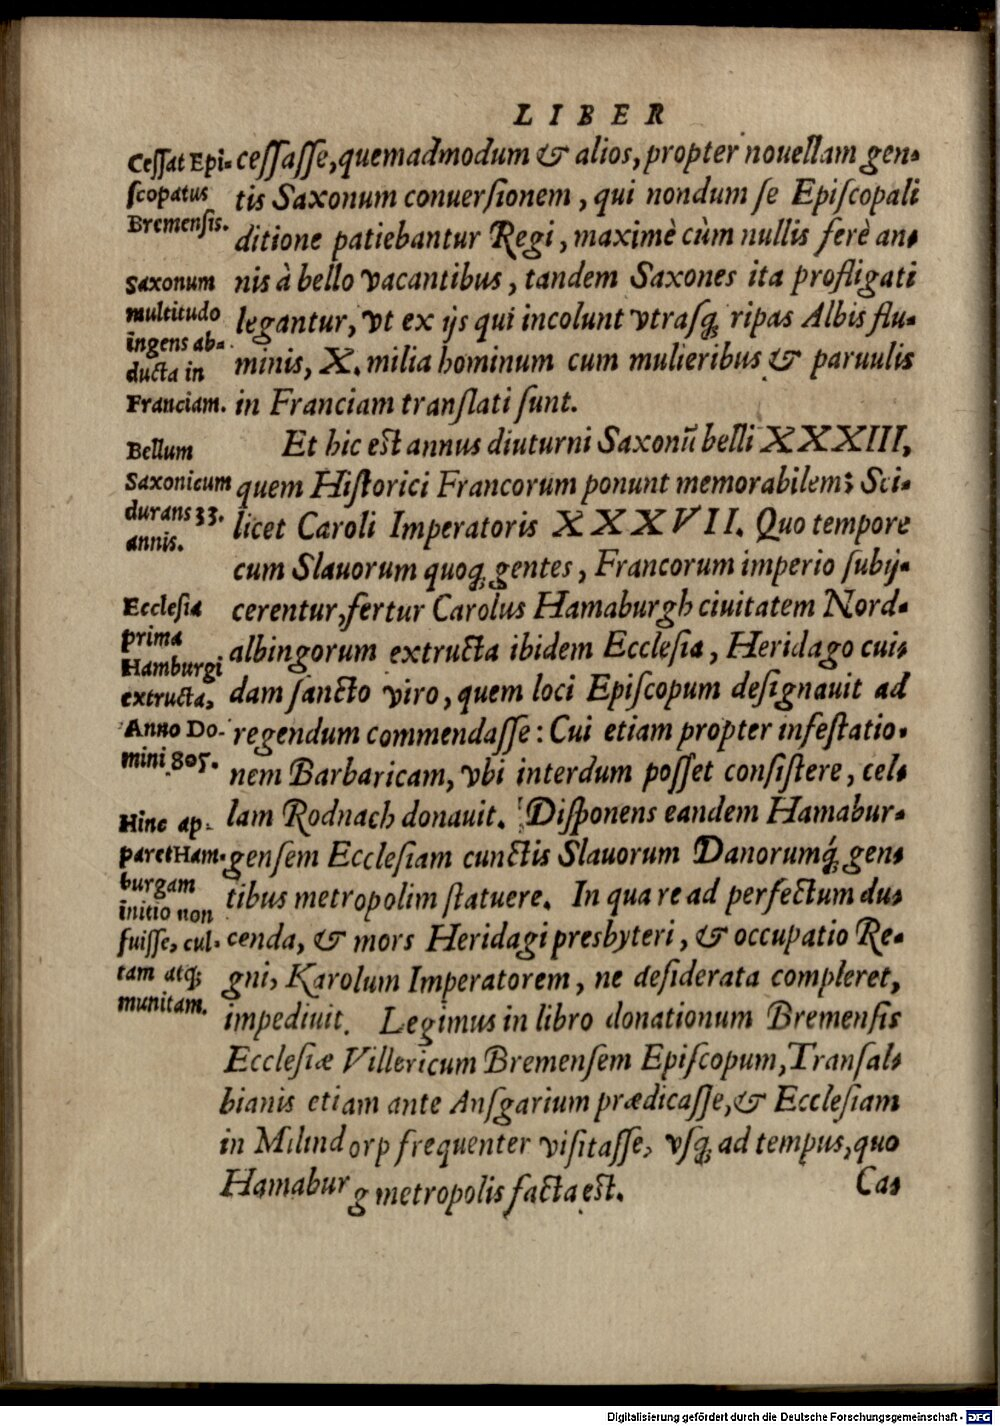 LIBER
Cessat Epi-
scopatus
Bremensis.
Saxonum
multitudo
ingens ab-
ducta in
Franciam.
Bellum
Saxonicum
durans 33.
annis.
Ecclesia
prima
Hamburgi
extructa,
Anno Do-
mini 805.
Hinc ap-
paret Ham-
burgam
initio non
fuisse, cul-
tam atq;
munitam.
cessasse, quemadmodum & alios, propter nouellam gen-
tis Saxonum conuersionem, qui nondum se Episcopali
ditione patiebantur Regi, maximè cùm nullis ferè an-
nis à bello vacantibus, tandem Saxones ita profligati
legantur, vt ex ijs qui incolunt vtrasq; ripas Albis flu-
minis, X. milia hominum cum mulieribus & paruulis
in Franciam translati sunt.
Et hic est annus diuturni Saxonū belli XXXIII,
quem Historici Francorum ponunt memorabilem; Sci-
licet Caroli Imperatoris XXXVII. Quo tempore
cum Slauorum quoq; gentes, Francorum imperio subij-
cerentur, fertur Carolus Hamaburgh ciuitatem Nord-
albingorum extructa ibidem Ecclesia, Heridago cui-
dam sancto viro, quem loci Episcopum designauit ad
regendum commendasse: Cui etiam propter infestatio-
nem Barbaricam, vbi interdum posset consistere, cel-
lam Rodnach donauit. Disponens eandem Hamabur-
gensem Ecclesiam cunctis Slauorum Danorumq́; gen-
tibus metropolim statuere. In qua re ad perfectum du-
cenda, & mors Heridagi presbyteri, & occupatio Re-
gni, Karolum Imperatorem, ne desiderata compleret,
impediuit. Legimus in libro donationum Bremensis
Ecclesiæ Villericum Bremensem Episcopum, Transal-
bianis etiam ante Ansgarium prædicasse, & Ecclesiam
in Milindorp frequenter visitasse, vsq; ad tempus, quo
Hamaburg metropolis facta est.
Ca-
Digitalisierung gefördert durch die Deutsche Forschungsgemeinschaft - DFG